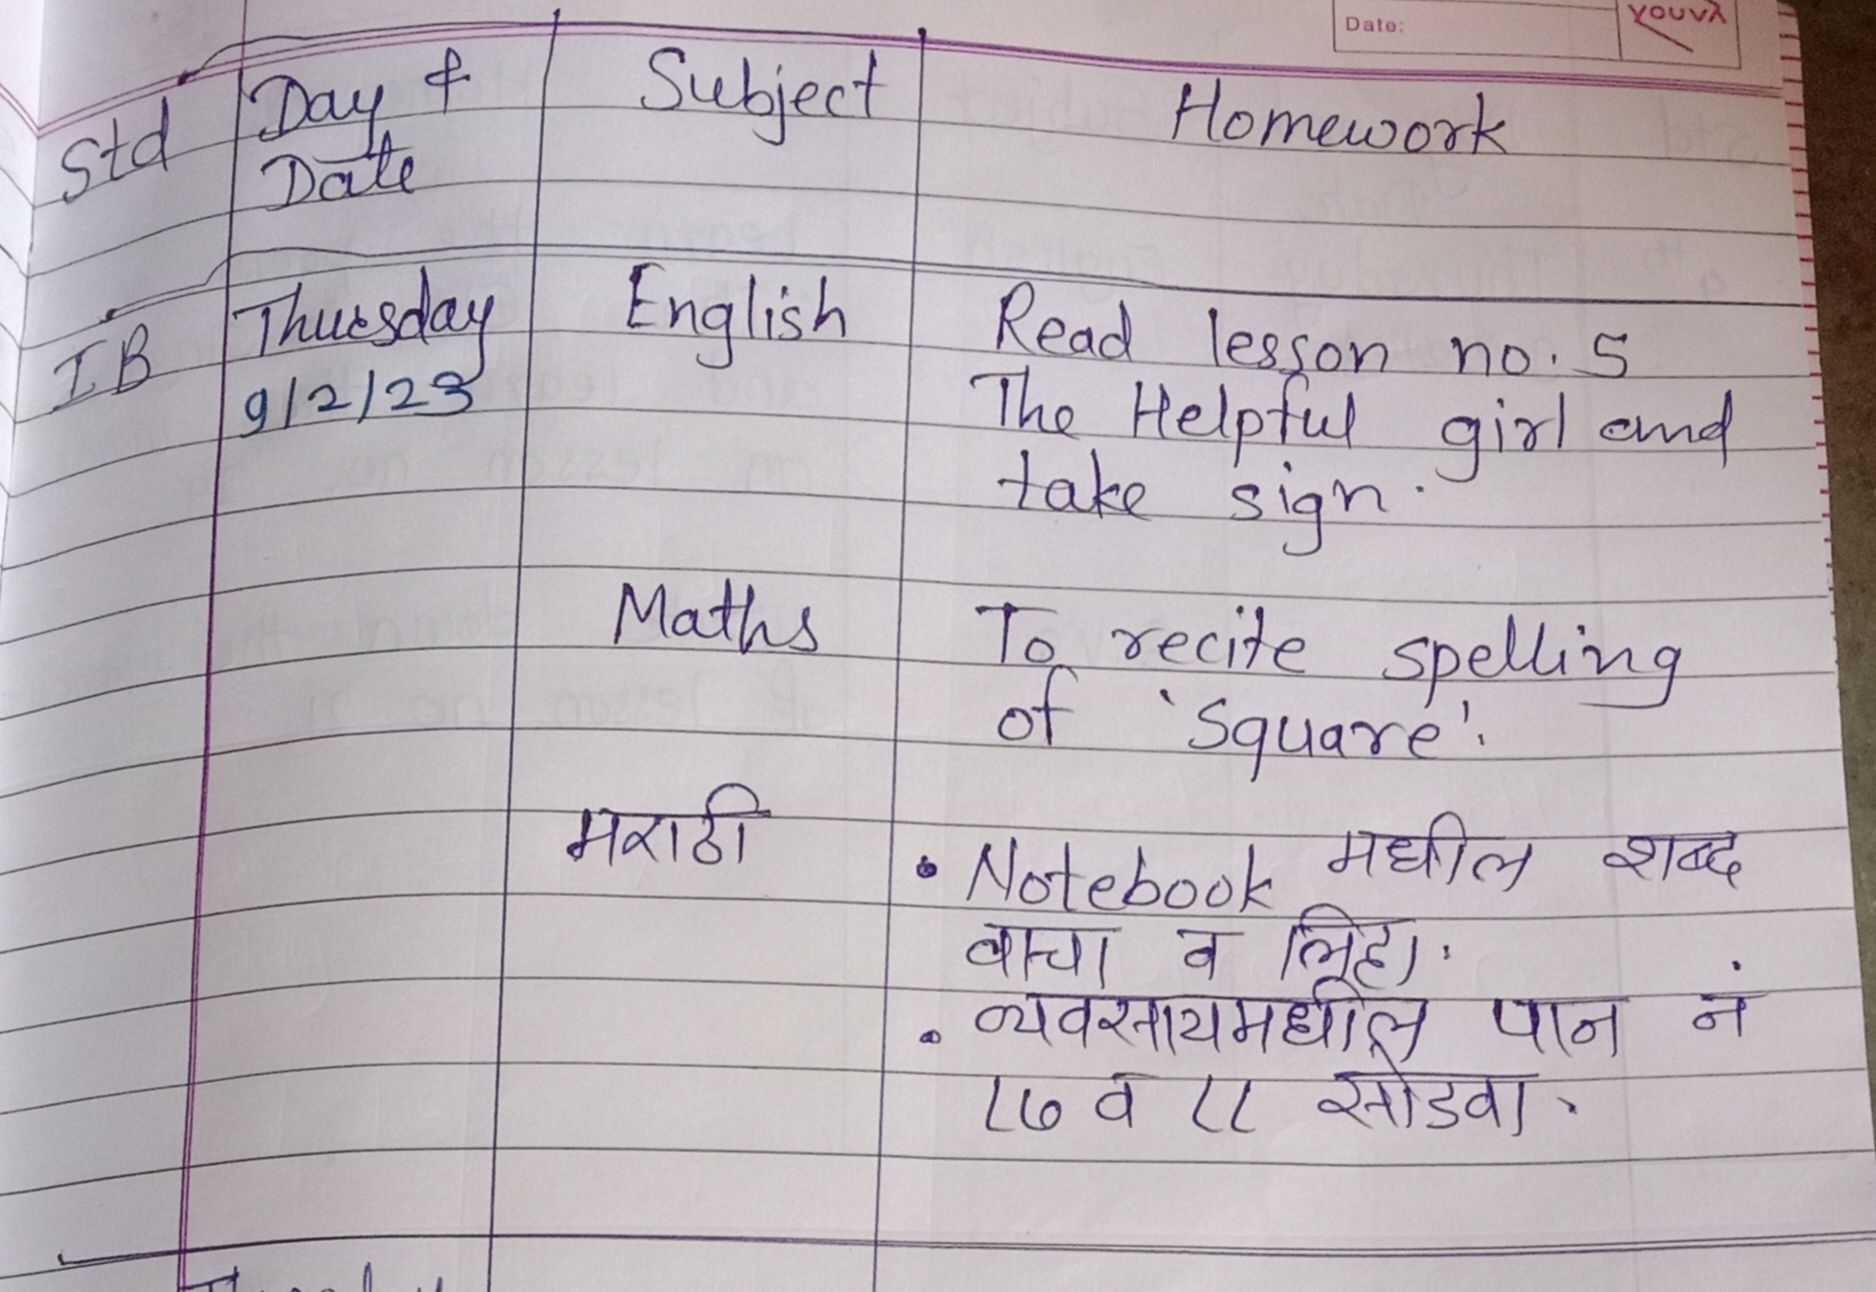 Date:
YOUVA
Std
Day &
Date
Subject
Homework
I B
Thursday
9/2/23
English
Read lesson no. 5
The Helpful girl and
take sign.
Maths
To recite spelling
of 'Square'.
मराठी
• Notebook मधील शब्द
वाचा व लिहा.
• व्यवसायमधील पान नं
८७ व ८८ सोडवा.